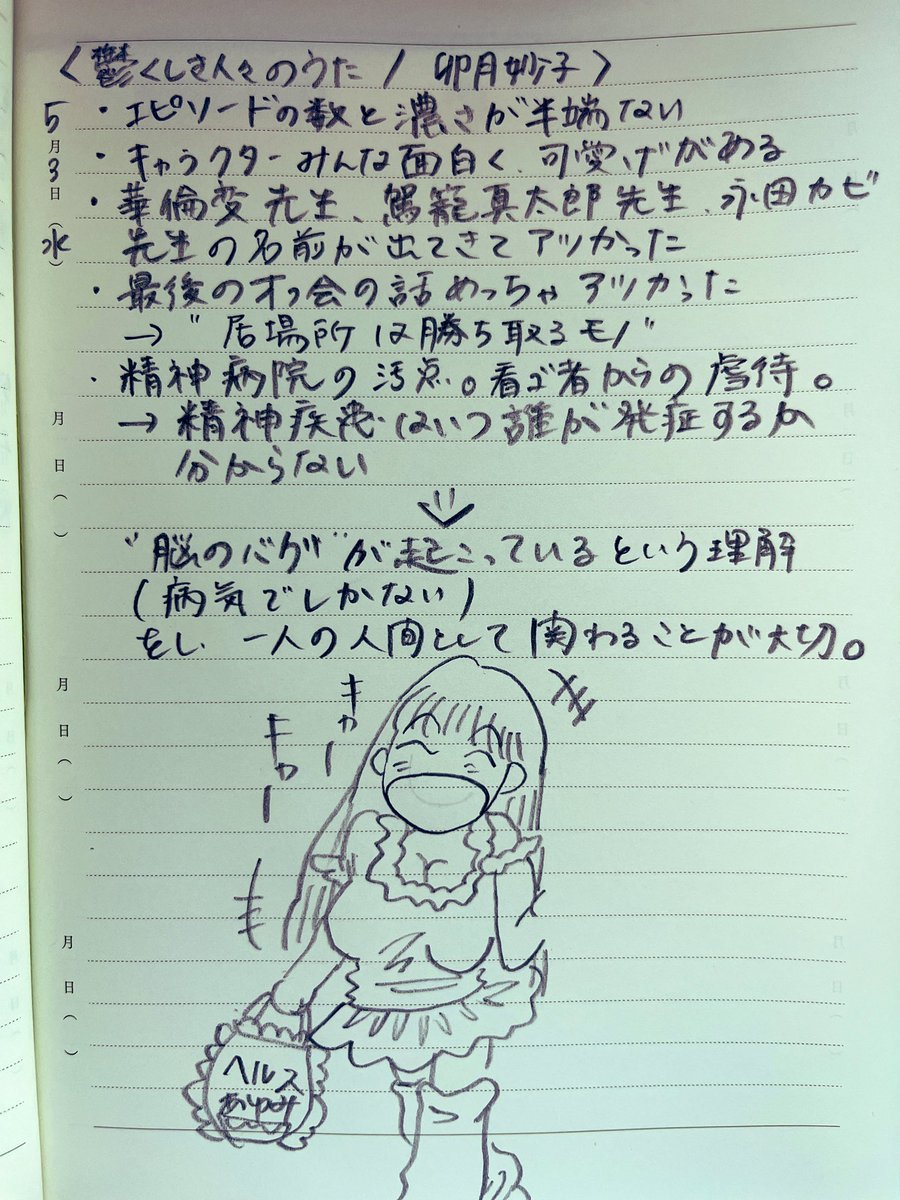 〈鬱くしき人々のうた / 卯月妙子〉
5月3日(水)
・エピソードの数と濃さが半端ない
・キャラクターみんな面白く、可愛げがある
・華倫変先生、駕籠真太郎先生、永田カビ
先生の名前が出てきてアツかった
・最後のオフ会の話めっちゃアツかった
→"居場所は勝ち取るモノ"
・精神病院の汚点。看ゴ者からの虐待。
→精神疾患はいつ誰が発症するか
分からない
"脳のバグ"が起こっているという理解
(病気でしかない)
をし、一人の人間として関わることが大切。
キャー
キャー
月日( )
月日( )
月日( )
ヘルス
あゆみ